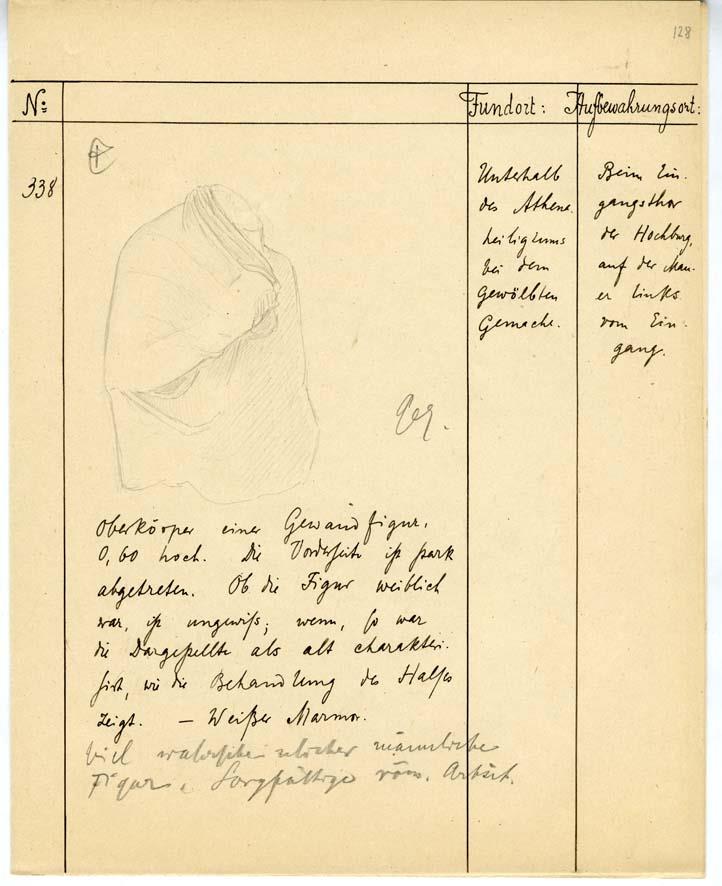 128
No: Fundort: Aufbewahrungsort:
338
Unterhalb
des Athena
heiligtums
bei dem
gewölbten
Gemache.
Beim Ein-
gangsthor
der Hochburg,
auf der Mau-
er links
vom Ein-
gang.
Gez.
Oberkörper einer Gewandfigur.
0,60 hoch. Die Vorderseite ist stark
abgetreten. Ob die Figur weiblich
war, ist ungewiß; wenn, so war
die Dargestellte als alt charakteri-
sirt, wie die Behandlung des Halses
zeigt. — Weißer Marmor.
Viel wahrscheinlicher männliche
Figur. Sorgfältige röm. Arbeit.